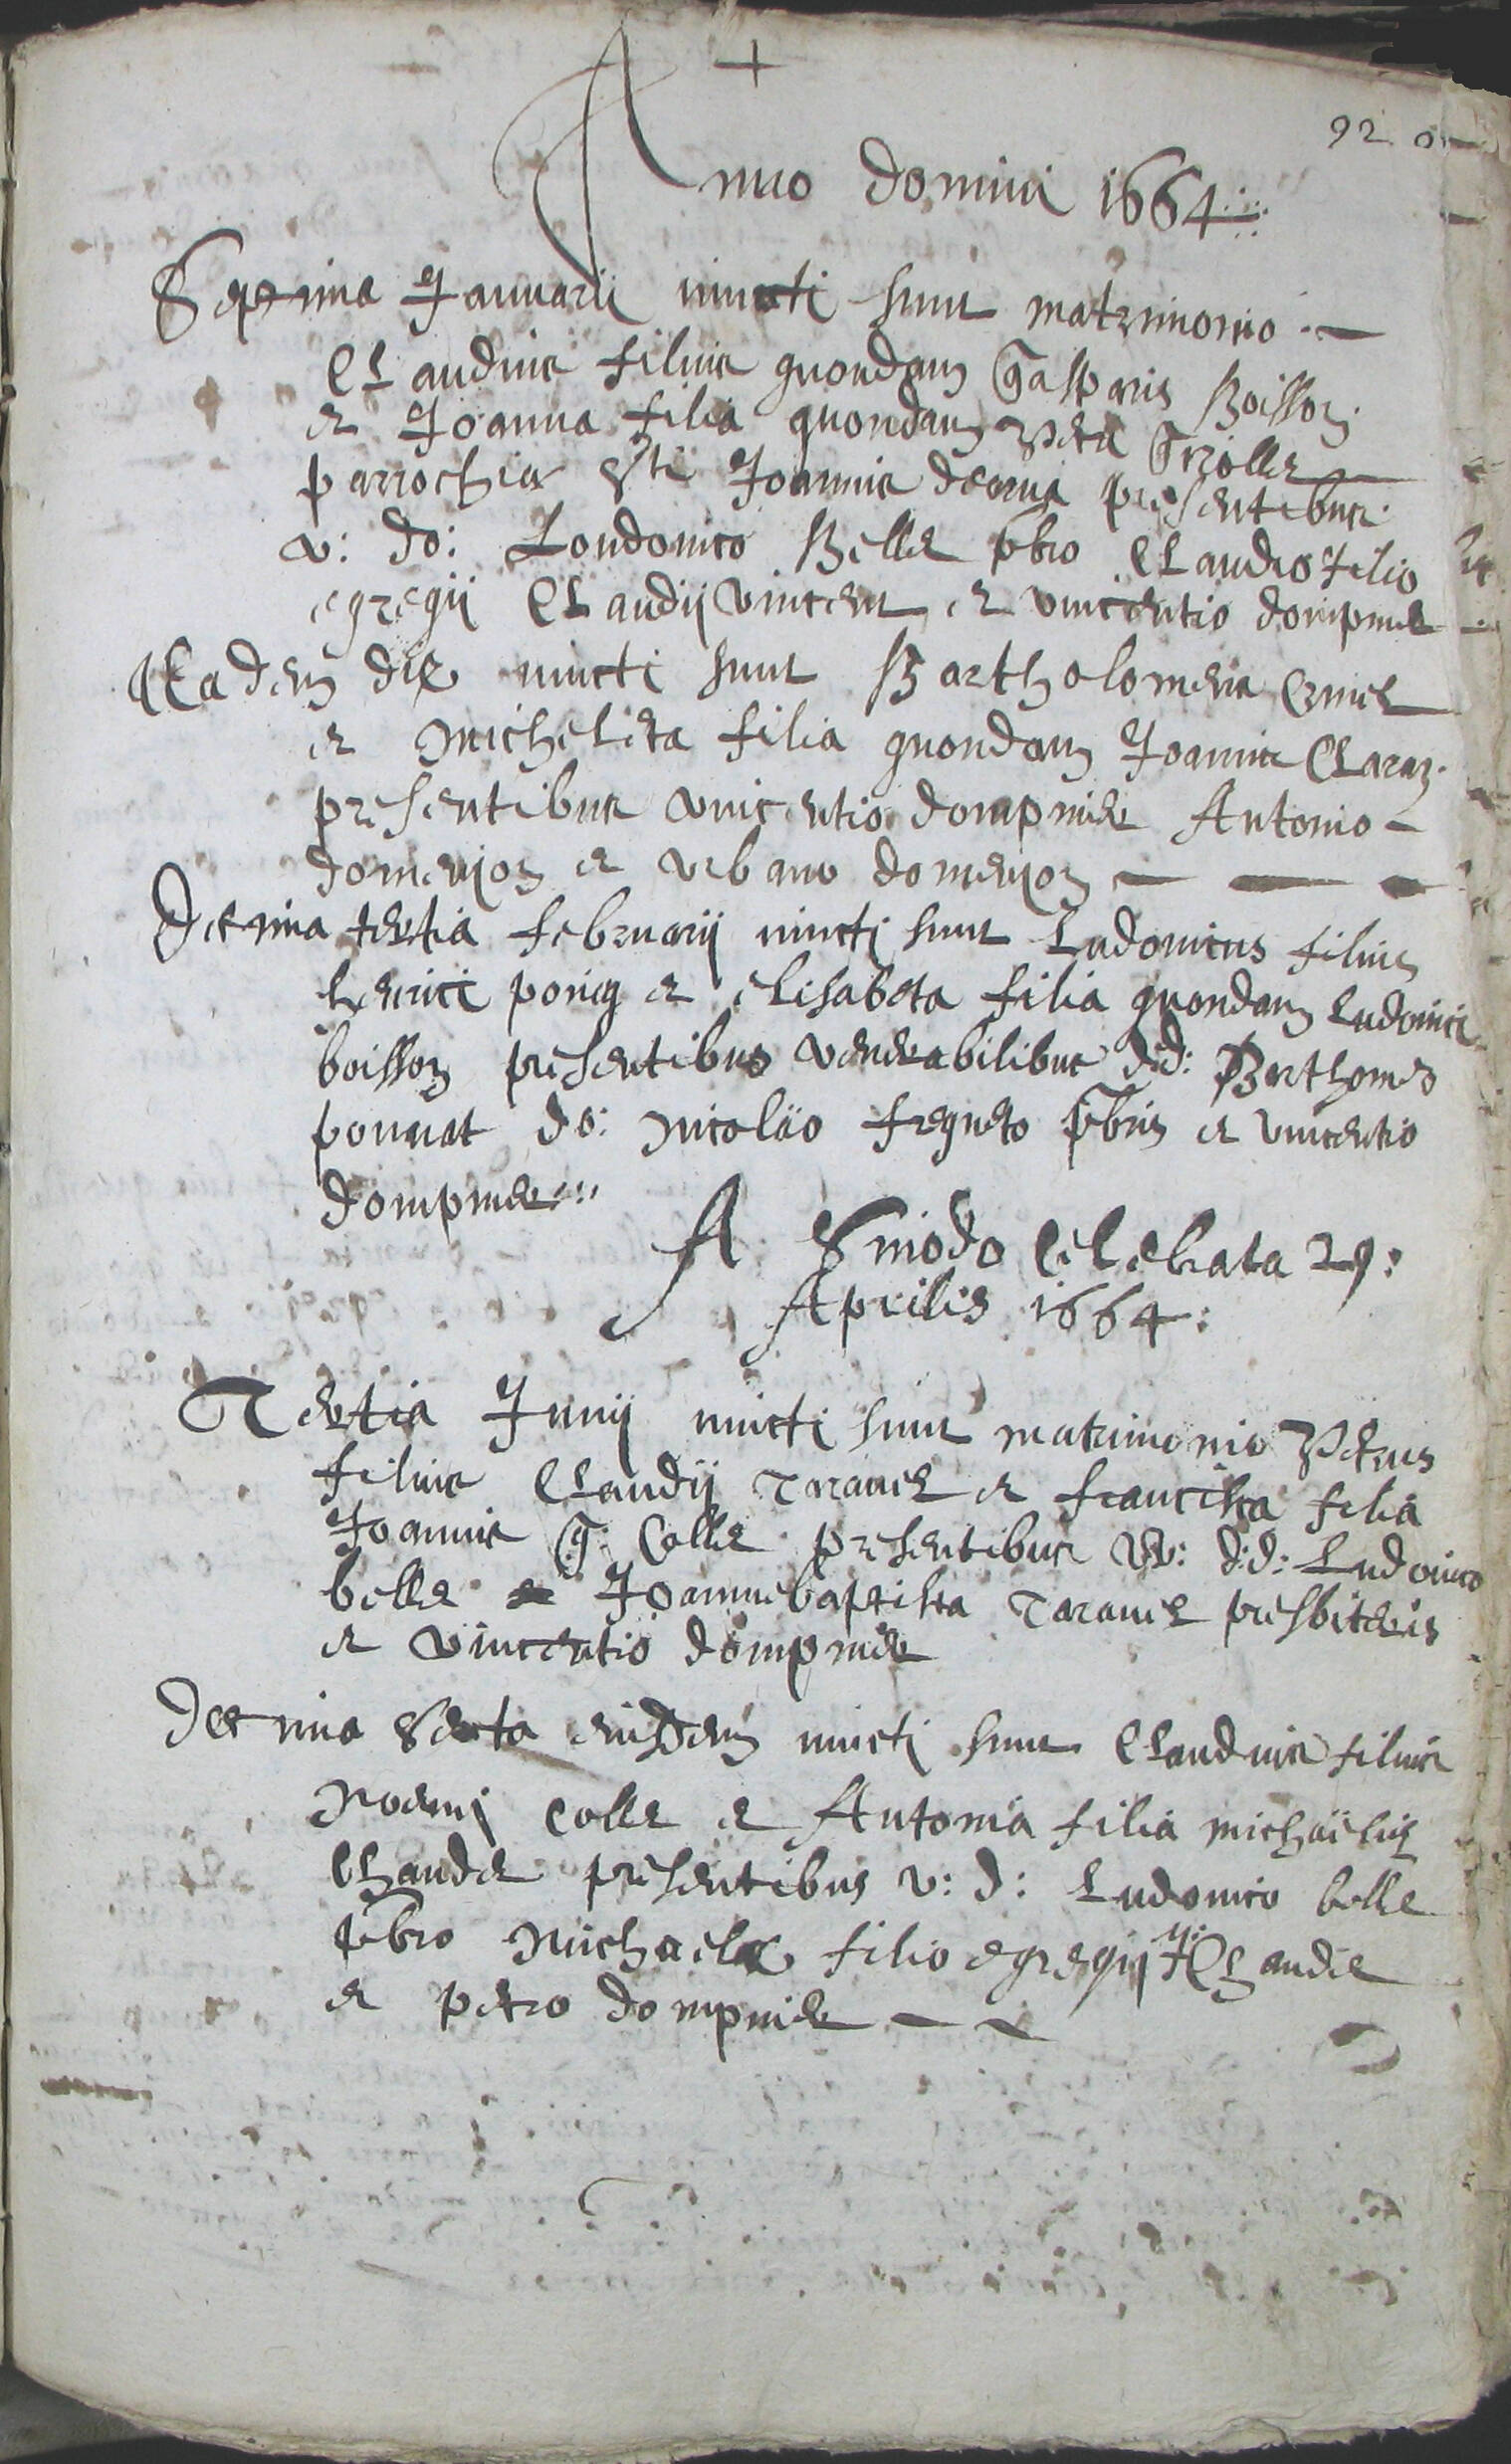 +
92
Anno Domini 1664
Septima Januarii iuncti sunt matrimonio
Claudius filius quondam Gasparis Boisson
et Joanna filia quondam Petri Grolle
parrochiæ Sti Joannis presentibus
v: do: Loudovico Belle pbro Claudio filio
egregij Claudij Vincent et Vincentio dompnie
Eadem die iuncti sunt Bartholomeus
et Micheleta filia quondam Joannis Claraz
presentibus Vincentio dompnie Antonio
domenjoz et Urbano domenjoz
Decima tertia februarij iuncti sunt Ludovicus filius
poncy et elisabeta filia quondam Ludovici
boisson presentibus venerabilibus d:d: Barthomeo
ponnat do: Nicolao fregueto pbris et Vincentio
dompnie
A Sinodo Celebrata 29:
Aprilis 1664:
Tertia Junij iuncti sunt matrimonio Petrus
filius Claudij Taravel et francisca filia
Joannis G: Colle presentibus vv: d:d: Ludovico
belle Joannebaptista Taravel presbiteris
et Vincentio dompnie
Decima Sexta eiusdem iuncti sunt Claudius filius
Noemj Colle et Antonia filia michaëlis
Chaude presentibus v: d: Ludovico belle
pbro Michaele filio egregij Chaude
et petro dompnie